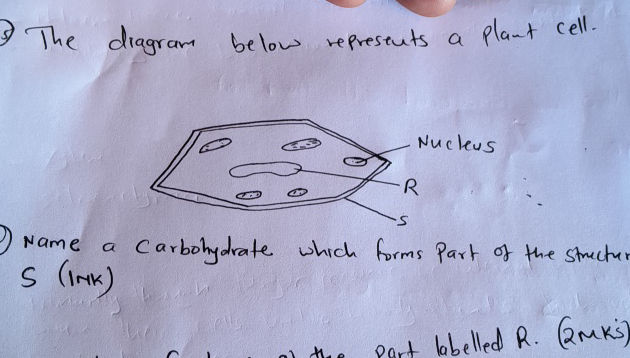 The diagram below represents a plant cell.
Nucleus
R
S
Name a Carbohydrate which forms part of the structur
S (1MK)
the part labelled R. (2mks)